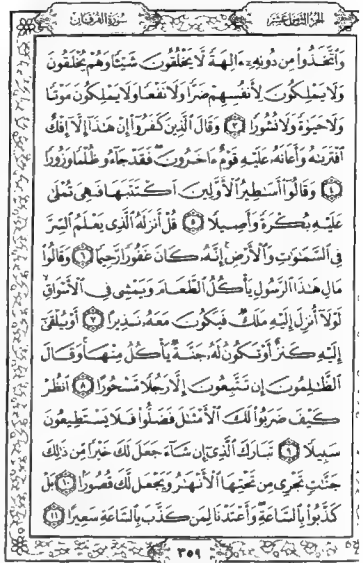 سُورَةُ الفُرْقَان
الجُزْءُ الثَّامِنُ عَشَرَ
وَٱتَّخَذُوا۟ مِن دُونِهِۦٓ ءَالِهَةً لَّا يَخْلُقُونَ شَيْـًٔا وَهُمْ يُخْلَقُونَ
وَلَا يَمْلِكُونَ لِأَنفُسِهِمْ ضَرًّا وَلَا نَفْعًا وَلَا يَمْلِكُونَ مَوْتًا
وَلَا حَيَوٰةً وَلَا نُشُورًا ٣ وَقَالَ ٱلَّذِينَ كَفَرُوٓا۟ إِنْ هَٰذَآ إِلَّآ إِفْكٌ
ٱفْتَرَىٰهُ وَأَعَانَهُۥ عَلَيْهِ قَوْمٌ ءَاخَرُونَ ۖ فَقَدْ جَآءُو ظُلْمًا وَزُورًا
٤ وَقَالُوٓا۟ أَسَٰطِيرُ ٱلْأَوَّلِينَ ٱكْتَتَبَهَا فَهِىَ تُمْلَىٰ
عَلَيْهِ بُكْرَةً وَأَصِيلًا ٥ قُلْ أَنزَلَهُ ٱلَّذِى يَعْلَمُ ٱلسِّرَّ
فِى ٱلسَّمَٰوَٰتِ وَٱلْأَرْضِ ۚ إِنَّهُۥ كَانَ غَفُورًا رَّحِيمًا ٦ وَقَالُوا۟
مَالِ هَٰذَا ٱلرَّسُولِ يَأْكُلُ ٱلطَّعَامَ وَيَمْشِى فِى ٱلْأَسْوَاقِ ۙ
لَوْلَآ أُنزِلَ إِلَيْهِ مَلَكٌ فَيَكُونَ مَعَهُۥ نَذِيرًا ٧ أَوْ يُلْقَىٰٓ
إِلَيْهِ كَنزٌ أَوْ تَكُونُ لَهُۥ جَنَّةٌ يَأْكُلُ مِنْهَا ۚ وَقَالَ
ٱلظَّٰلِمُونَ إِن تَتَّبِعُونَ إِلَّا رَجُلًا مَّسْحُورًا ٨ ٱنظُرْ
كَيْفَ ضَرَبُوا۟ لَكَ ٱلْأَمْثَٰلَ فَضَلُّوا۟ فَلَا يَسْتَطِيعُونَ
سَبِيلًا ٩ تَبَارَكَ ٱلَّذِىٓ إِن شَآءَ جَعَلَ لَكَ خَيْرًا مِّن ذَٰلِكَ
جَنَّٰتٍ تَجْرِى مِن تَحْتِهَا ٱلْأَنْهَٰرُ وَيَجْعَل لَّكَ قُصُورًۢا ١٠ بَلْ
كَذَّبُوا۟ بِٱلسَّاعَةِ ۖ وَأَعْتَدْنَا لِمَن كَذَّبَ بِٱلسَّاعَةِ سَعِيرًا ١١
٣٥٩